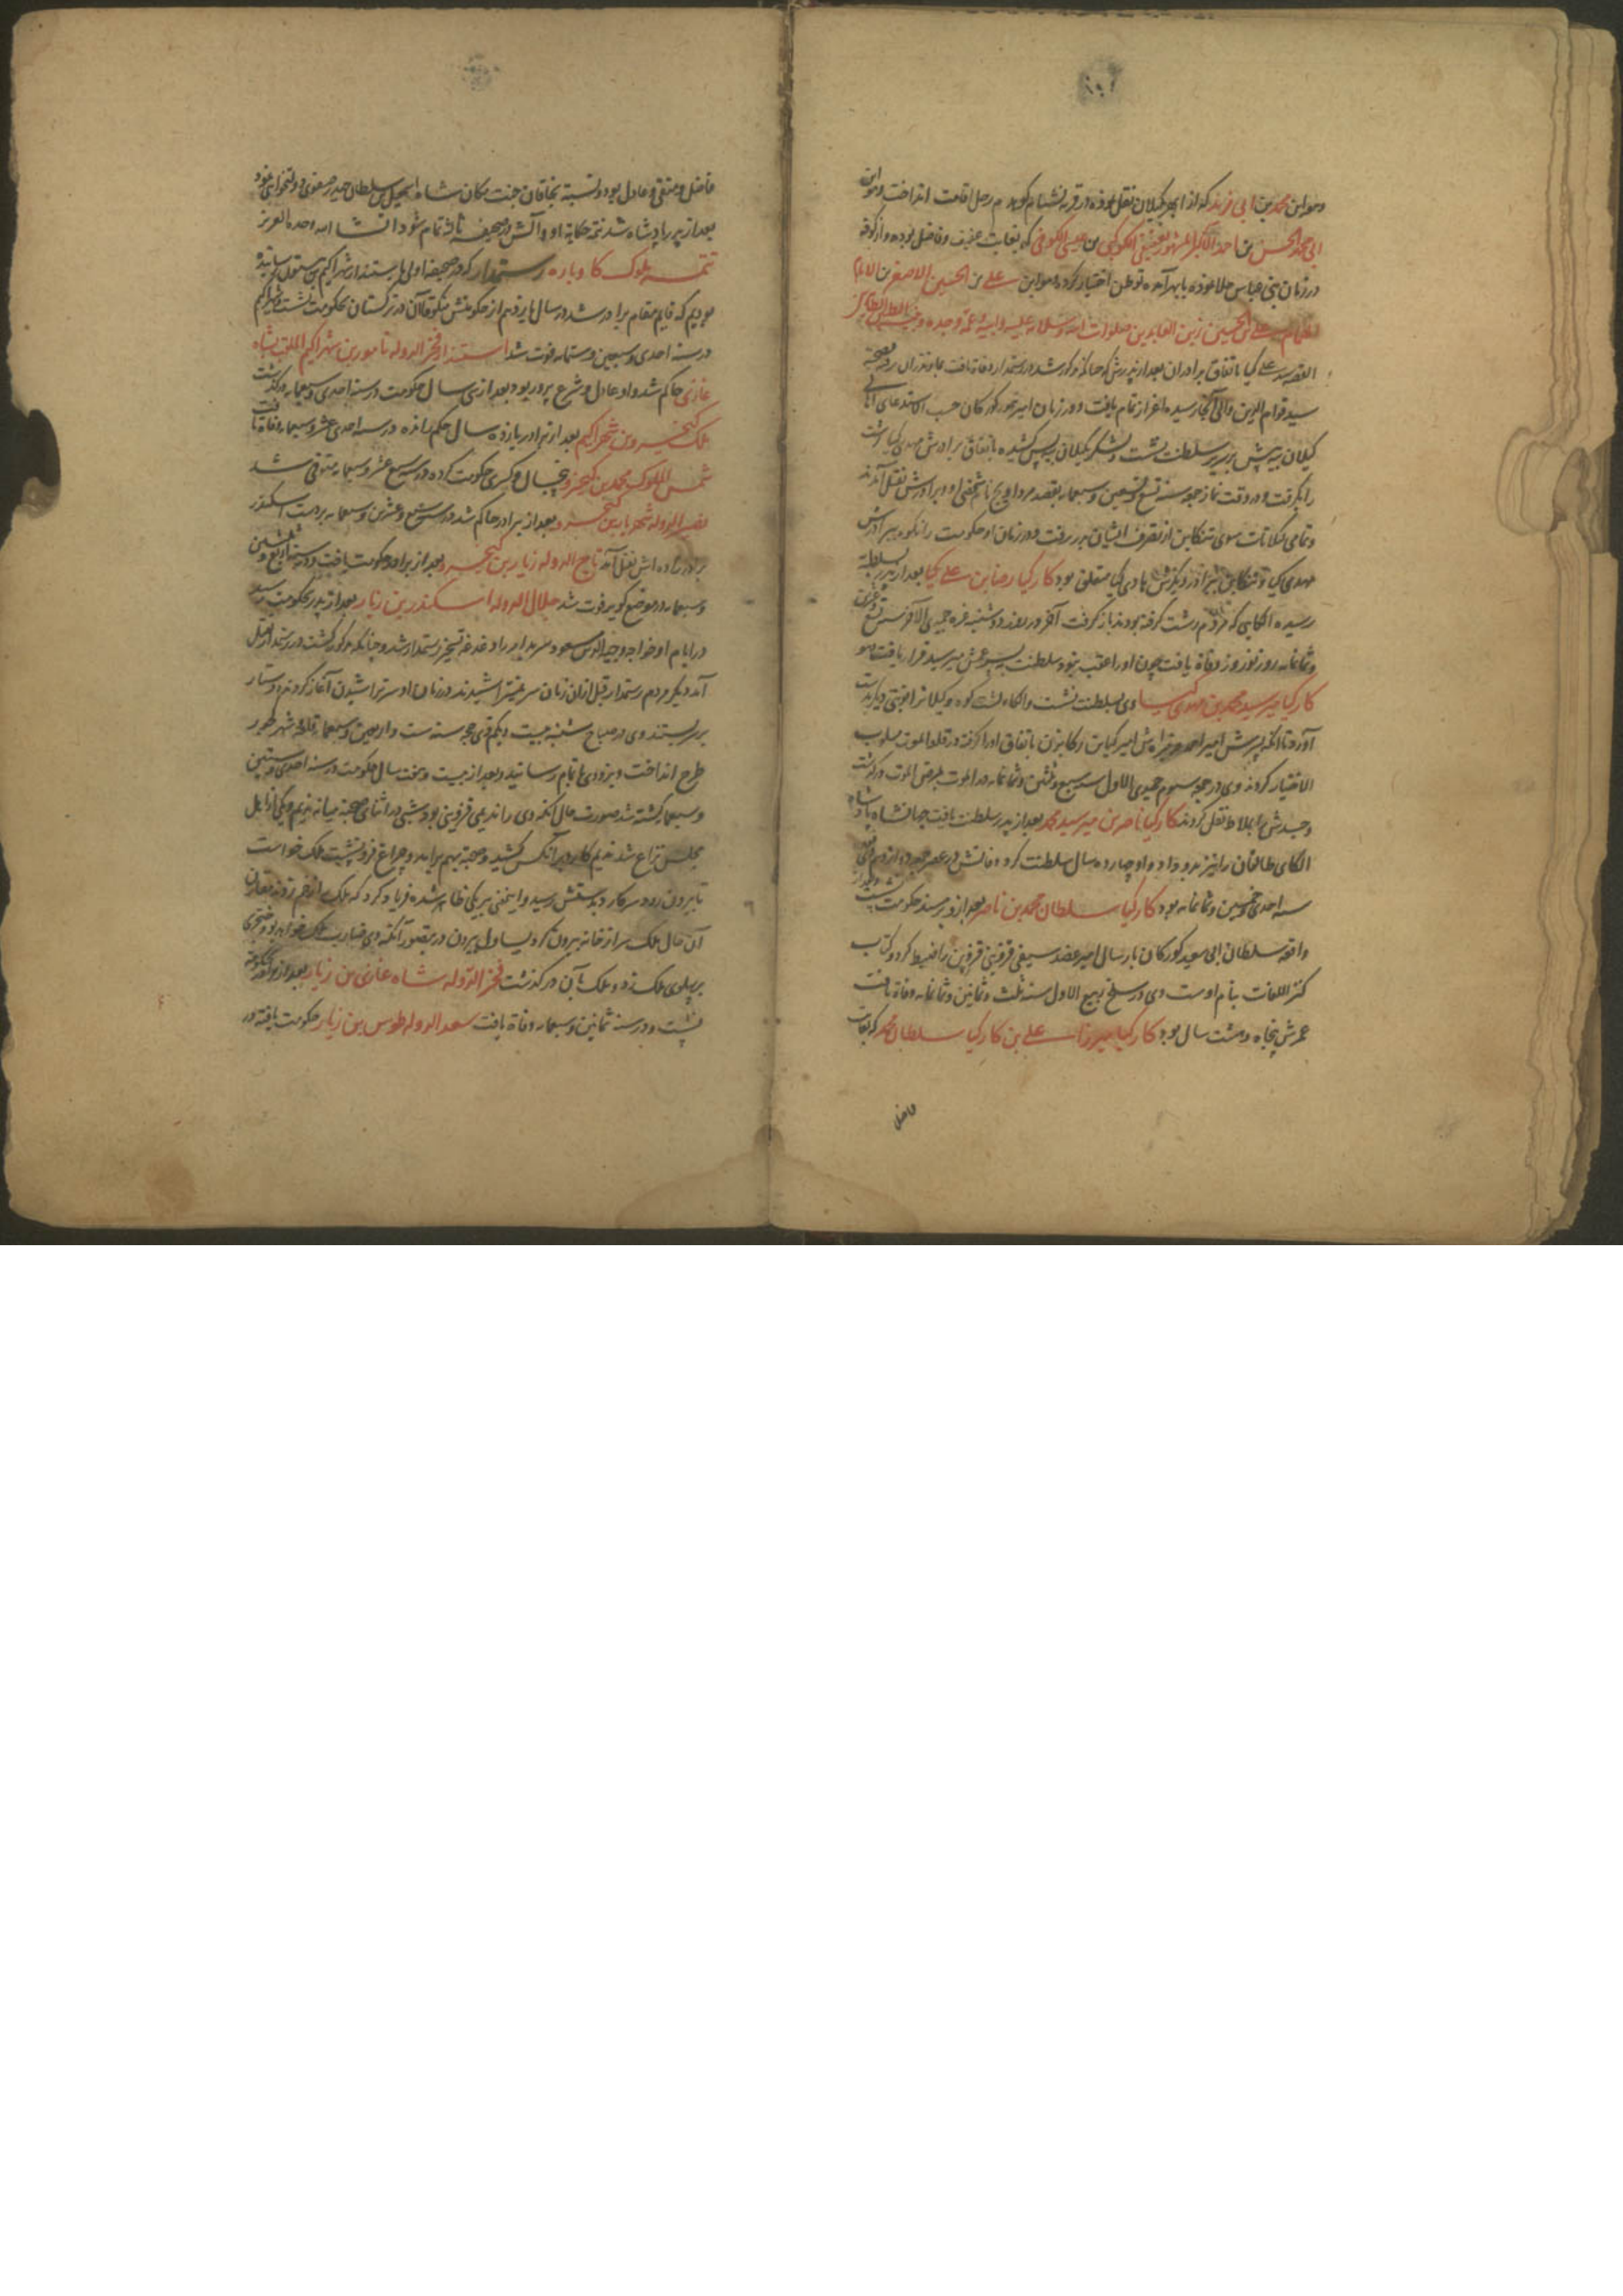 وهو ابن محمد بن ابی فرید که از ابهر بگیلان نقل نموده در قریه فشتام کوهدم رحل اقامت انداخت وهو ابن
ابی محمد الحسن بن احمد الاکبر المشهور بعقیقی الکوکبی بن عیسی الکوفی که بغایت عفیف و فاضل بوده و از کوفه
در زمان بنی عباس جلا نموده بابهر آمده توطن اختیار کرد وهو ابن علی بن الحسین الاصغر بن الامام
الهمام علی بن الحسین زین العابدین صلوات الله وسلامه علیه و ابیه و عمه وجده
القصه سید علی کیا باتفاق برادران بعد از پدرش که چنانکه مذکور شد در رستمدار وفاة یافت بمازندران رفته بصحبة
سید قوام الدین والی آنجا رسیده اعزاز تمام یافت و در زمان امیر تیمور کورکان حسب الاستدعای اهالی
کیلان بیه پیش بر سریر سلطنت نشست و لشکر بگیلان بیه پس کشیده باتفاق برادرش مهدی کیا رشت
را بگرفت و در وقت نماز جمعه سنه تسع و تسعین و سبعمایه بقصد مرداویج نام شخصی او و برادرش بقتل آمدند
و تمامی تنکابن از تصرف ایشان بدر رفت و در زمان او حکومت رانکوه ببرادرش
مهدی کیا و تنکابن ببرادر دیگرش هادی کیا متعلق بود کارکیا رضا بن علی کیا بعد از پدر بسلطنة
رسیده الکایی که مردم رشت گرفته بودند باز گرفت آخر در روز دوشنبه غره جمیدی الآخر سنه تسع و عشرین
و ثمانمایه روز نوروز وفاة یافت چون او را عقب نبود سلطنت بپسر عمش میر سید قرار یافت
کارکیا میر سید محمد بن مهدی کیا وی بسلطنت نشست و الکاء لشته کوه و کیلانرا نوبتی دیگر بدست
آورد تا آنکه پسرش امیر باتفاق او را گرفته در قلعه الموت مسلوب
الاختیار کردند وی در جمعه سیوم جمیدی الاول سنه سبع و ثلثین و ثمانمایه در الموت بمرض الموت درگذشت
و جسدش را بملاط نقل کردند کارکیا ناصر بن میر سید محمد بعد از پدر سلطنت یافت جهانشاه پادشاه
الکای طالقان را نیز بدو داد و او چهارده سال سلطنت کرد وفاتش در عصر جمعه دوازدهم
سنه احدی و خمسین و ثمانمایه بود کارکیا سلطان محمد بن ناصر بعد از پدر بر مسند حکومت نشست و بعد از
واقعه سلطان ابی سعید کورکان بارسال امیر عضد سیفی قزوینی قزوین را ضبط کرد و کتاب
کنز اللغات بنام اوست وی در سلخ ربیع الاول سنه ثلث و ثمانین و ثمانمایه وفاة یافت
عمرش پنجاه و هشت سال بود کارکیا میرزا علی بن کارکیا سلطان محمد که بغایت
فاضل
فاضل و متقی و عادل بود و نسبة بخاقان جنت مکان شاه اسمعیل بن سلطان حیدر صفوی دولتخواهی نمود
بعد از پدر پادشاه شد تتمه حکایة او و آلش در صحیفه ثالثه تمام شود انشا الله وحده العزیز
تتمه ملوک کاوباره رستمدار که در صحیفه اولی باستندار شهراکیم بن رسانیده
بودیم که قایم مقام برادر شد در سال یازدهم از حکومتش منکوقاآن در ترکستان بحکومت نشست و شهراکیم
در سنه احدی و سبعین و ستمایه فوت شد استندار فخر الدوله نامور بن شهراکیم الملقب بشاه
غازی حاکم شد و او عادل و شرع پرور بود بعد از سی سال حکومت در سنه احدی و سبعمایه درگذشت
ملک کیخسرو بن شهراکیم بعد از برادر یازده سال حکم رانده در سنه احدی عشر و سبعمایه وفاة یافت
شمس الملوک محمد بن کیخسرو پنج سال و کسری حکومت کرده در سنه سبع عشر و سبعمایه متوفی شد
نصیر الدوله شهریار بن کیخسرو بعد از برادر حاکم شد در سنه و عشرین و سبعمایه بر دست اسکندر
برادرزاده اش بقتل آمد تاج الدوله زیار بن کیخسرو بعد از برادر حکومت یافت و در سنه اربع و ثلثین
و سبعمایه در موضع کویر فوت شد جلال الدوله اسکندر بن زیار بعد از پدر بحکومت رسید
در ایام او خواجه وجیه الدین مسعود سربدار را دغدغه تسخیر رستمدار شد و چنانکه مذکور گشت در رستمدار بقتل
آمد دیگر مردم رستمدار قبل ازان زمان سر نمیتراشیدند در زمان او سر تراشیدن آغاز کردند و دستار
بر سر بستند وی در صباح شنبه بیست و یکم ذی حجه سنه ست و اربعین و سبعمایه قلعه شهر کجور
طرح انداخت و بزودی باتمام رسانید و بعد از بیست و هفت سال حکومت در سنه احدی و ستین
و سبعمایه کشته شد صورت حال آنکه وی را ندیمی قزوینی بود شبی در اثنای صحبة میانه ندیم و یکی از اهل
مجلس نزاع شد ندیم کارد بر آنکس کشید و صحبة بهم برآمد و چراغ فرو نشست ملک خواست
تا بیرون رود سر کارد بدستش رسید و این معنی بر یکی ظاهر شده فریاد کرد که ملک را زخم زدند مقارن
آن حال ملک سر از خانه بیرون کرد یساول بیرون در بتصور آنکه وی ضارب ملک خواهد بود خنجری
بر پهلوی ملک زد و ملک بآن درگذشت فخر الدوله شاه غازی بن زیار بعد از برادر بحکومة
نشست و در سنه ثمانین و سبعمایه وفاة یافت سعد الدوله طوس بن زیار حکومت یافته در